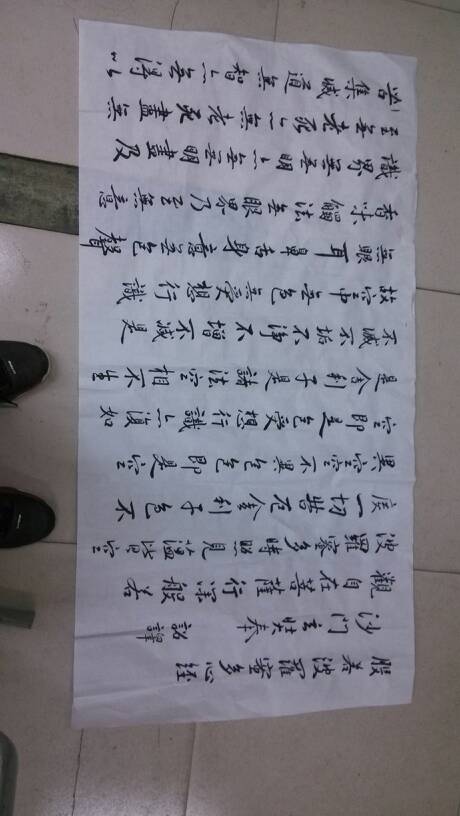 般若波羅蜜多心経
沙門玄奘奉 詔譯
觀自在菩薩行深般若
波羅蜜多時照見蘊皆空
度一切苦厄舍利子色不
異空空不異色色即是空
空即是色受想行識亦復如
是舍利子是諸法空相不生
不滅不垢不淨不增不減是
故空中無色無受想行識
無眼耳鼻舌身意無色聲
香味觸法無眼界乃至無意
識界無無明亦無無明盡及
至無老死亦無老死盡無
苦集滅道無智亦無得以